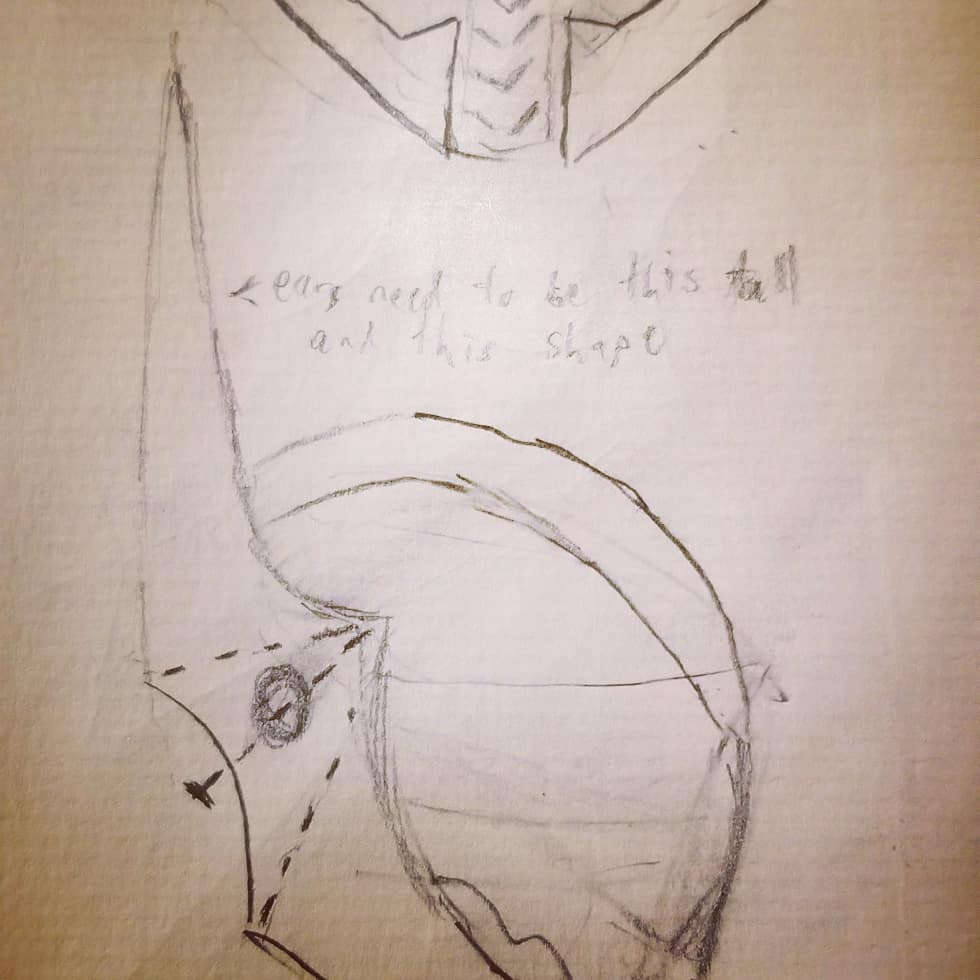 ears need to be this tall
and this shape